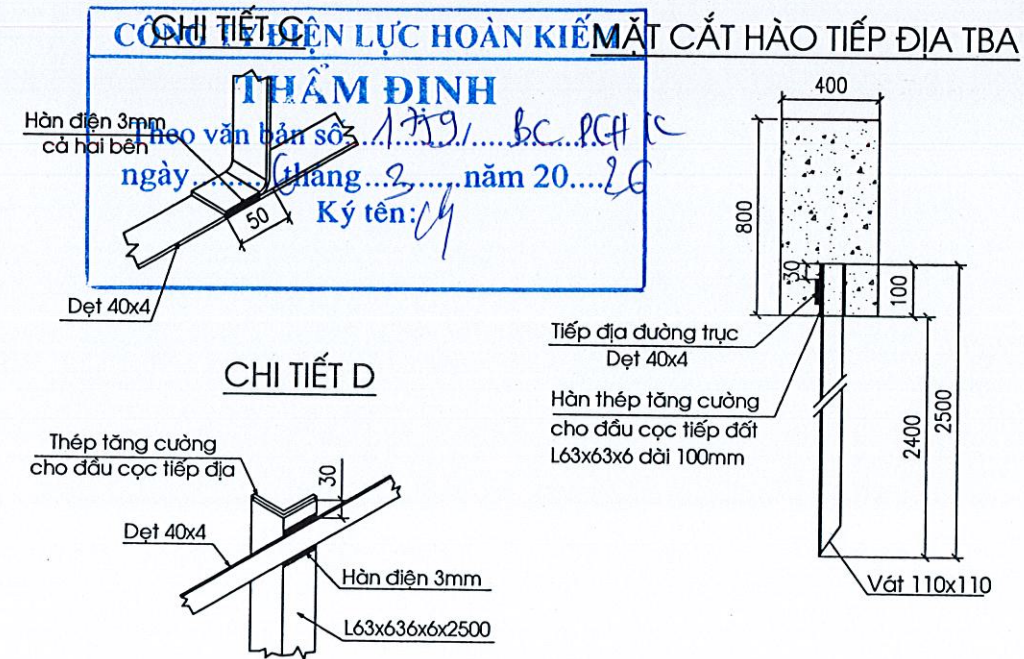 CHI TIẾT C
CÔNG TY ĐIỆN LỰC HOÀN KIẾM
THẨM ĐỊNH
Theo văn bản số:
ngày........tháng...3......năm 20....26
Ký tên:
Hàn điện 3mm
cả hai bên
50
Dẹt 40x4
MẶT CẮT HÀO TIẾP ĐỊA TBA
400
800
30
100
Tiếp địa đường trục
Dẹt 40x4
Hàn thép tăng cường
cho đầu cọc tiếp đất
L63x63x6 dài 100mm
2400
2500
Vát 110x110
CHI TIẾT D
Thép tăng cường
cho đầu cọc tiếp địa
30
Dẹt 40x4
Hàn điện 3mm
L63x636x6x2500